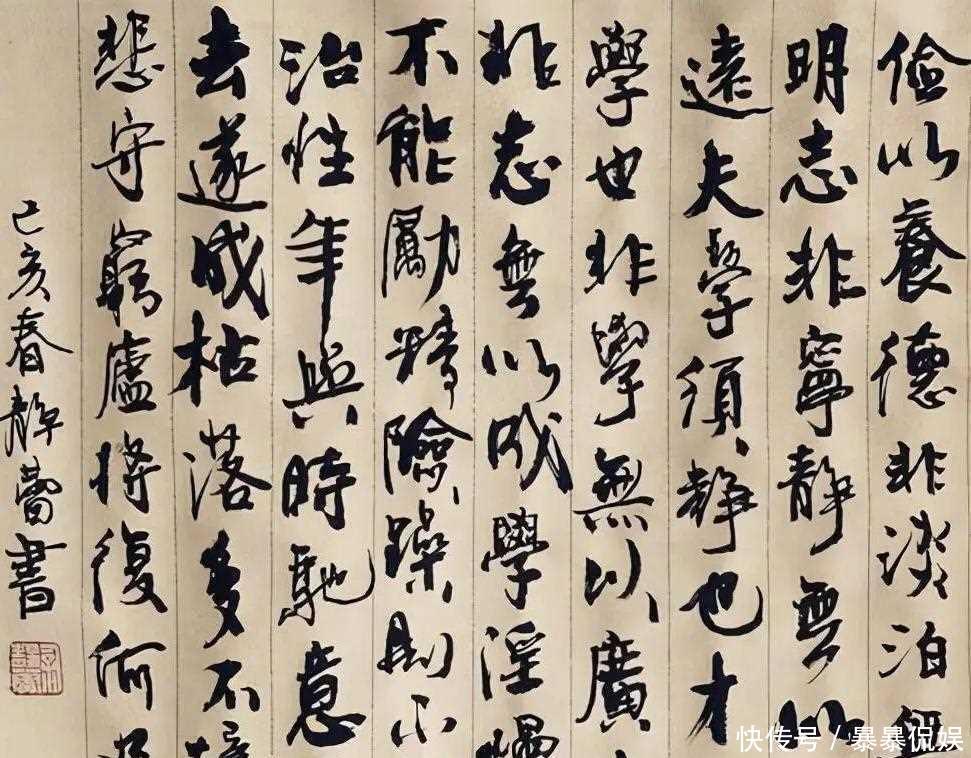 儉以養德非淡泊無
明志非寧靜無以
遠夫學須靜也才
學也非學無以廣
非志無以成學淫
不能勵精險躁則不
治性年與時馳意
去遂成枯落多不接
悲守窮廬將復何
己亥春靜蕾書
快传号 / 暴暴侃娱